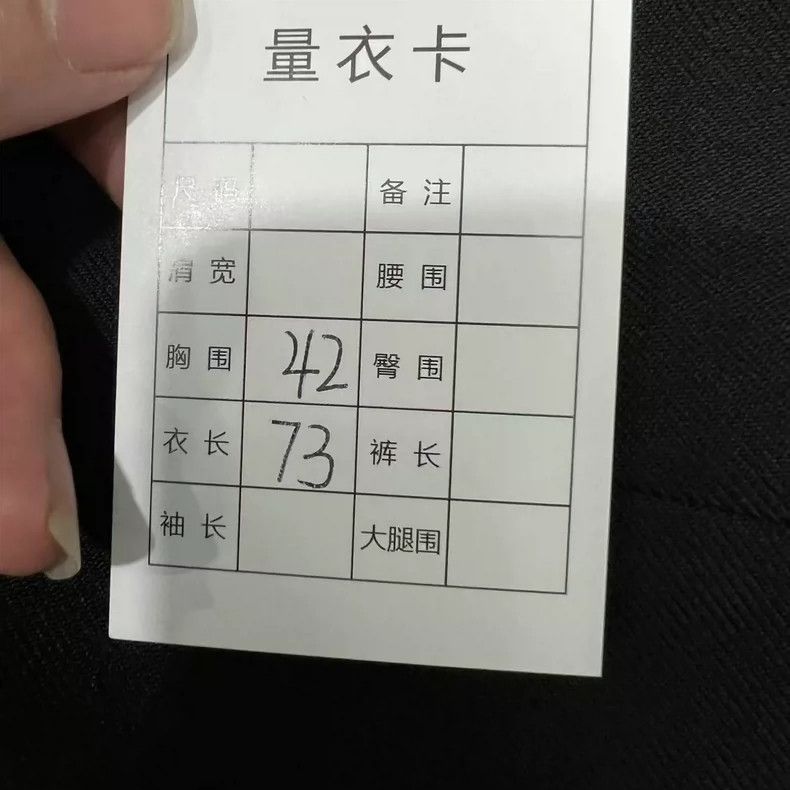 量衣卡
尺码 备注
肩宽 腰围
胸围 42 臀围
衣长 73 裤长
袖长 大腿围